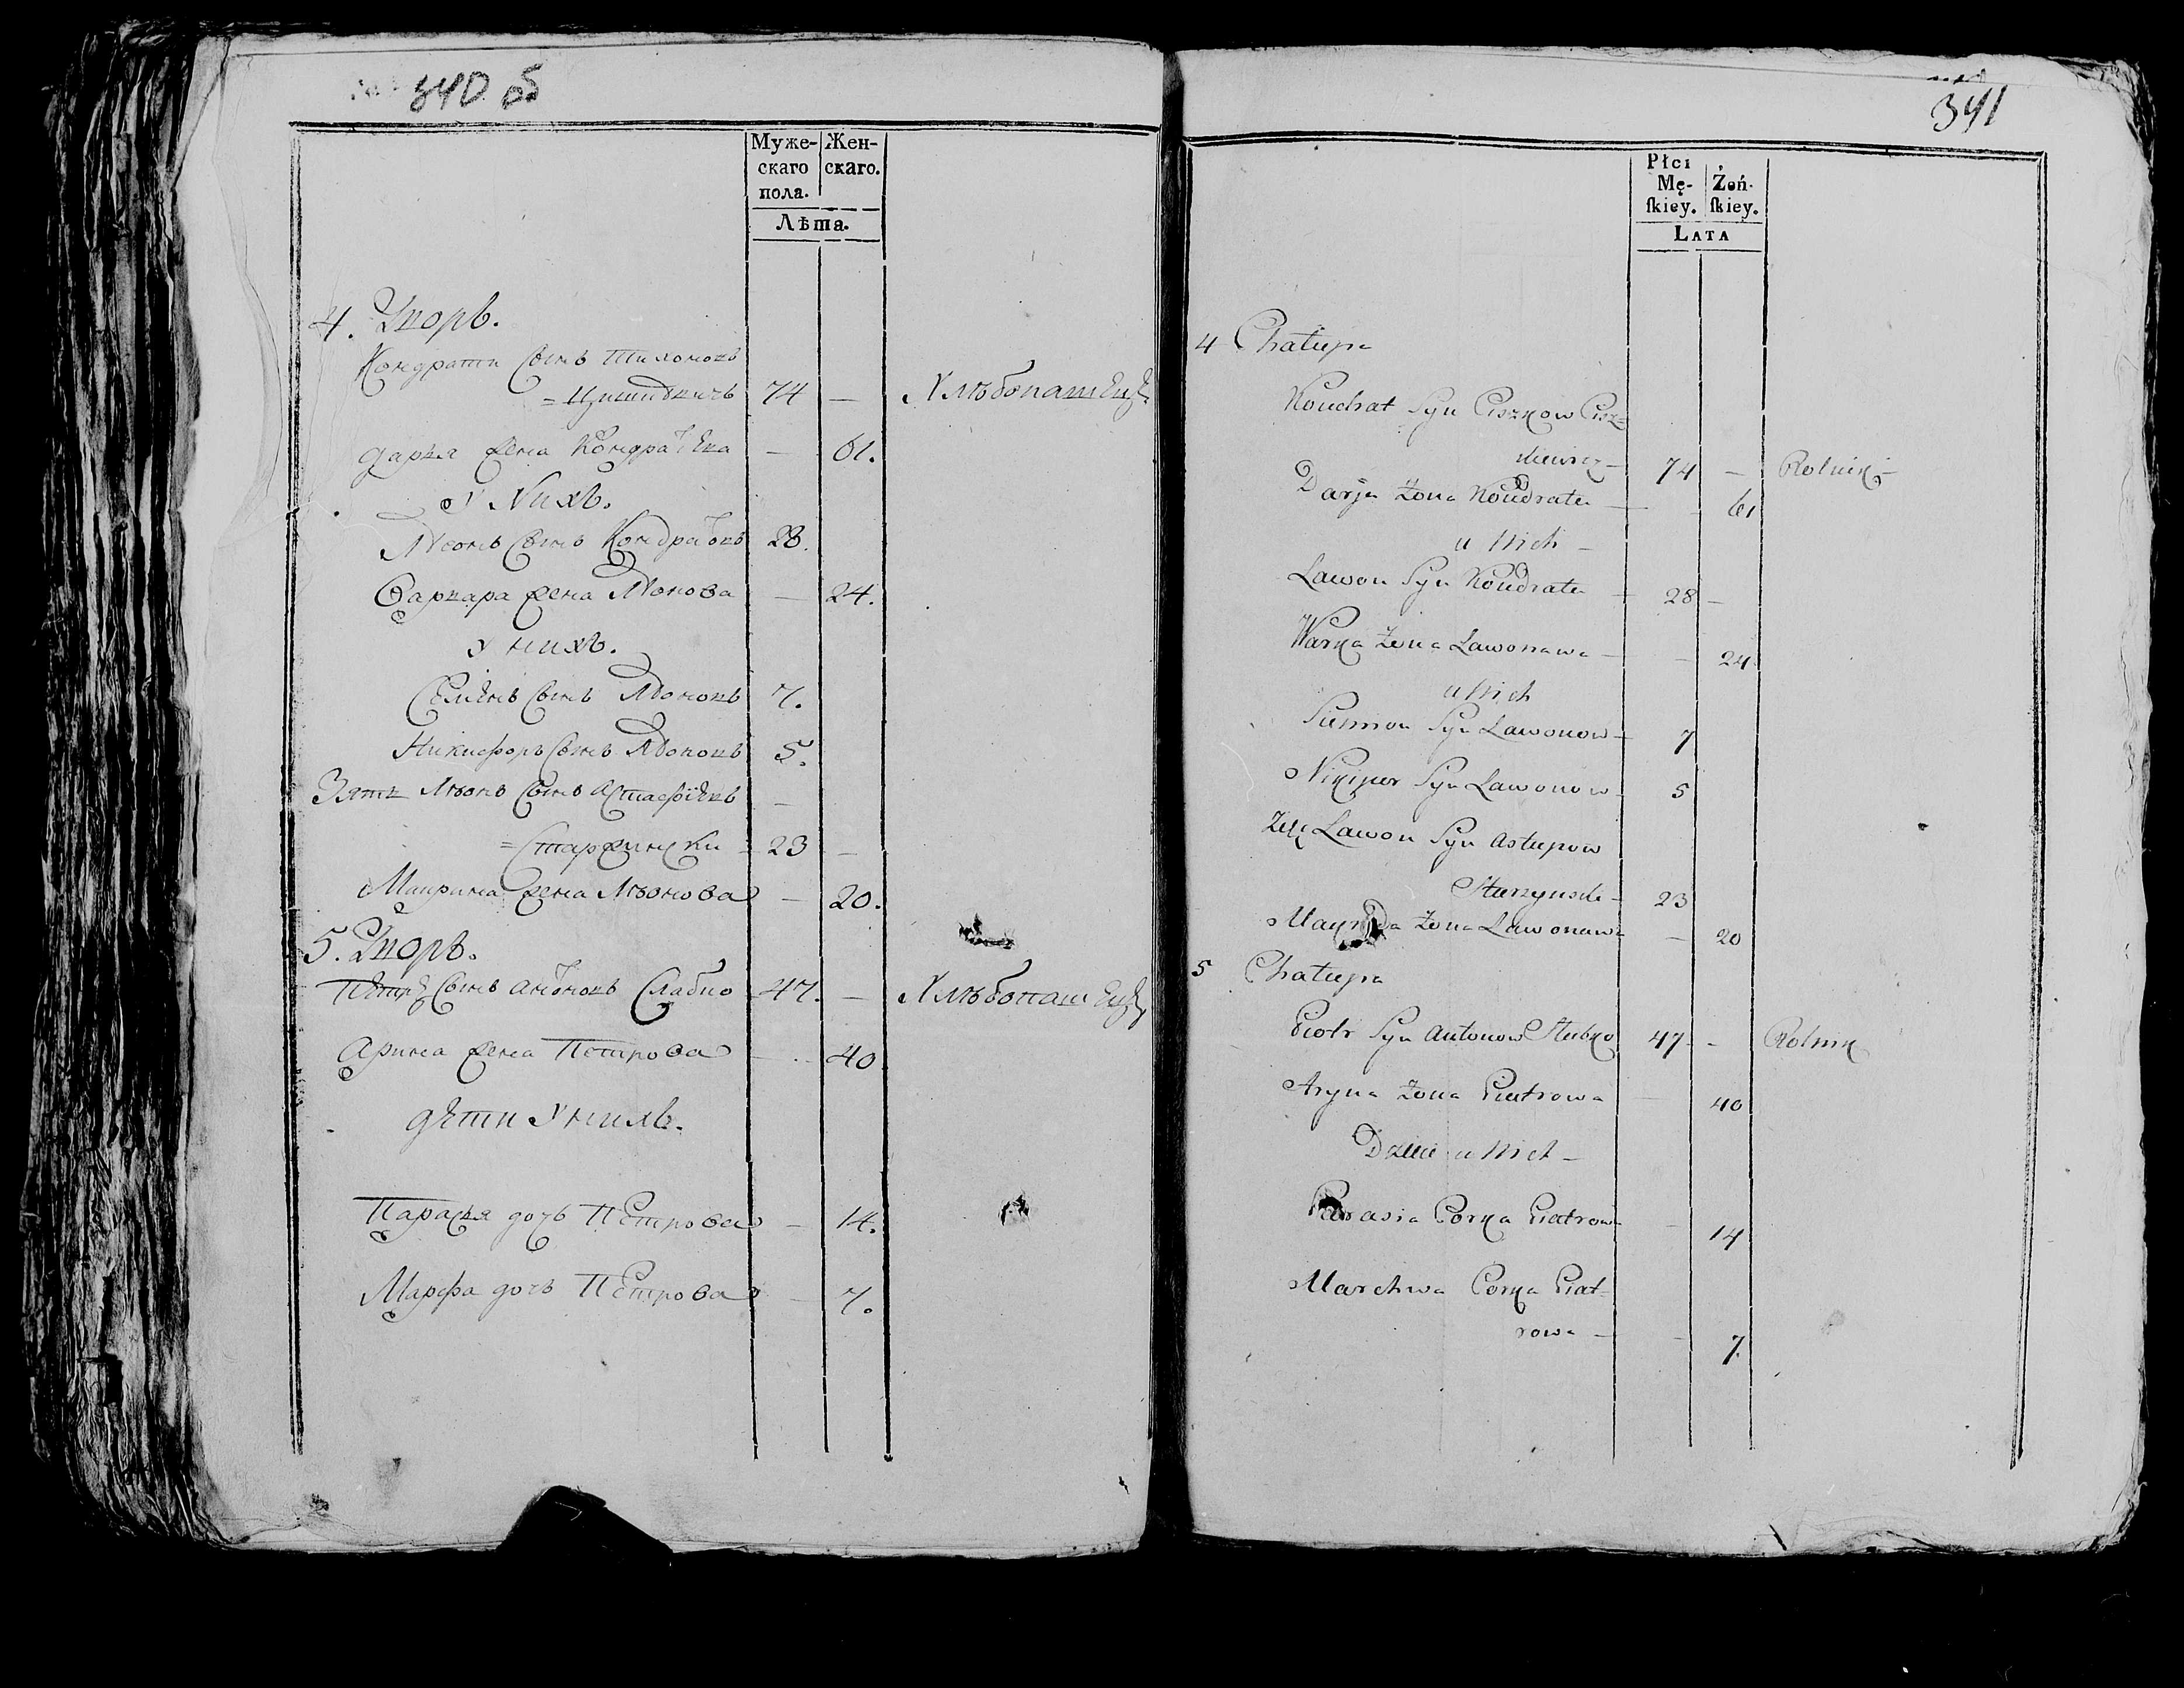 340 об
Муже-
скаго
пола.
Жен-
скаго.
Лѣта.
4. Дворъ.
Кондрати Сынъ Тихоновъ
= Цишкевичъ 74 — Хлѣбопашецъ
Дарья Жена Кондратьева — 61.
У Нихъ.
Леонъ Сынъ Кондратовъ 28.
Варвара Жена Леонова — 24.
У нихъ.
Семенъ Сынъ Леоновъ 7.
Никифоръ Сынъ Леоновъ 5.
Зять Леонъ Сынъ Астафіевъ —
= Старжински 23 —
Маирина Жена Леонова — 20.
5. Дворъ.
Петръ Сынъ Антоновъ Слабко 47. — Хлѣбопашецъ
Арина Жена Петрова — 40
Дети У нихъ.
Парасья дочь Петрова — 14.
Марфа дочь Петрова — 7.
341
Płci
Mę-
skiey.
Żeń-
skiey.
LATA
4 Chałupa
Kondrat Syn Ciszkow Cisz=
kiewicz — 74 — Rolnik —
Darja Żona Kondrata — 61
u Nich —
Lawon Syn Kondrata — 28 —
Warka Żona Lawonawa — — 24
u Nich
Siemion Syn Lawonow — 7
Nikiper Syn Lawonow — 5
Zięć Lawon Syn Astapow
Starzynski — 23
Żona Lawonawa — 20
5 Chałupa
Piotr Syn Antonow Slabko 47 — Rolnik
Aryna Żona Piatrowa — 40
Dzieci u Nich —
Parasia Corka Piatrowa — 14
Marchwa Corka Piat=
rowa — — 7.